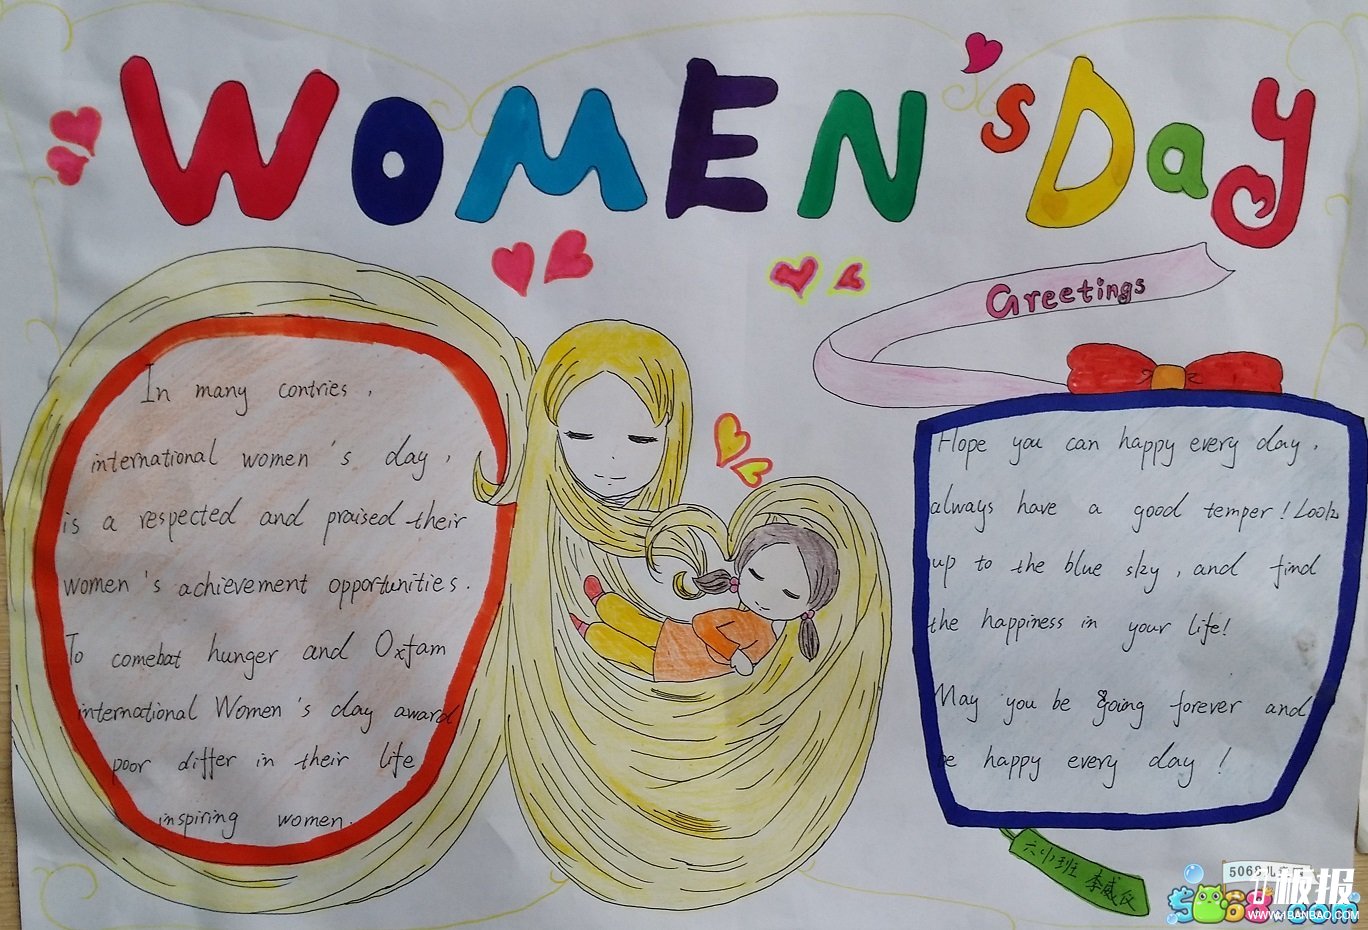 WOMEN'S Day
Greetings
In many contries,
international women's day,
is a respected and praised their
women's achievement opportunities.
To comebat hunger and Oxfam
international Women's day award
poor differ in their life
inspiring women.
Hope you can happy every day,
always have a good temper! Look
up to the blue sky, and find
the happiness in your life!
May you be going forever and
be happy every day!
李威仪
板报
WWW.1BANBAO.COM
5068.com